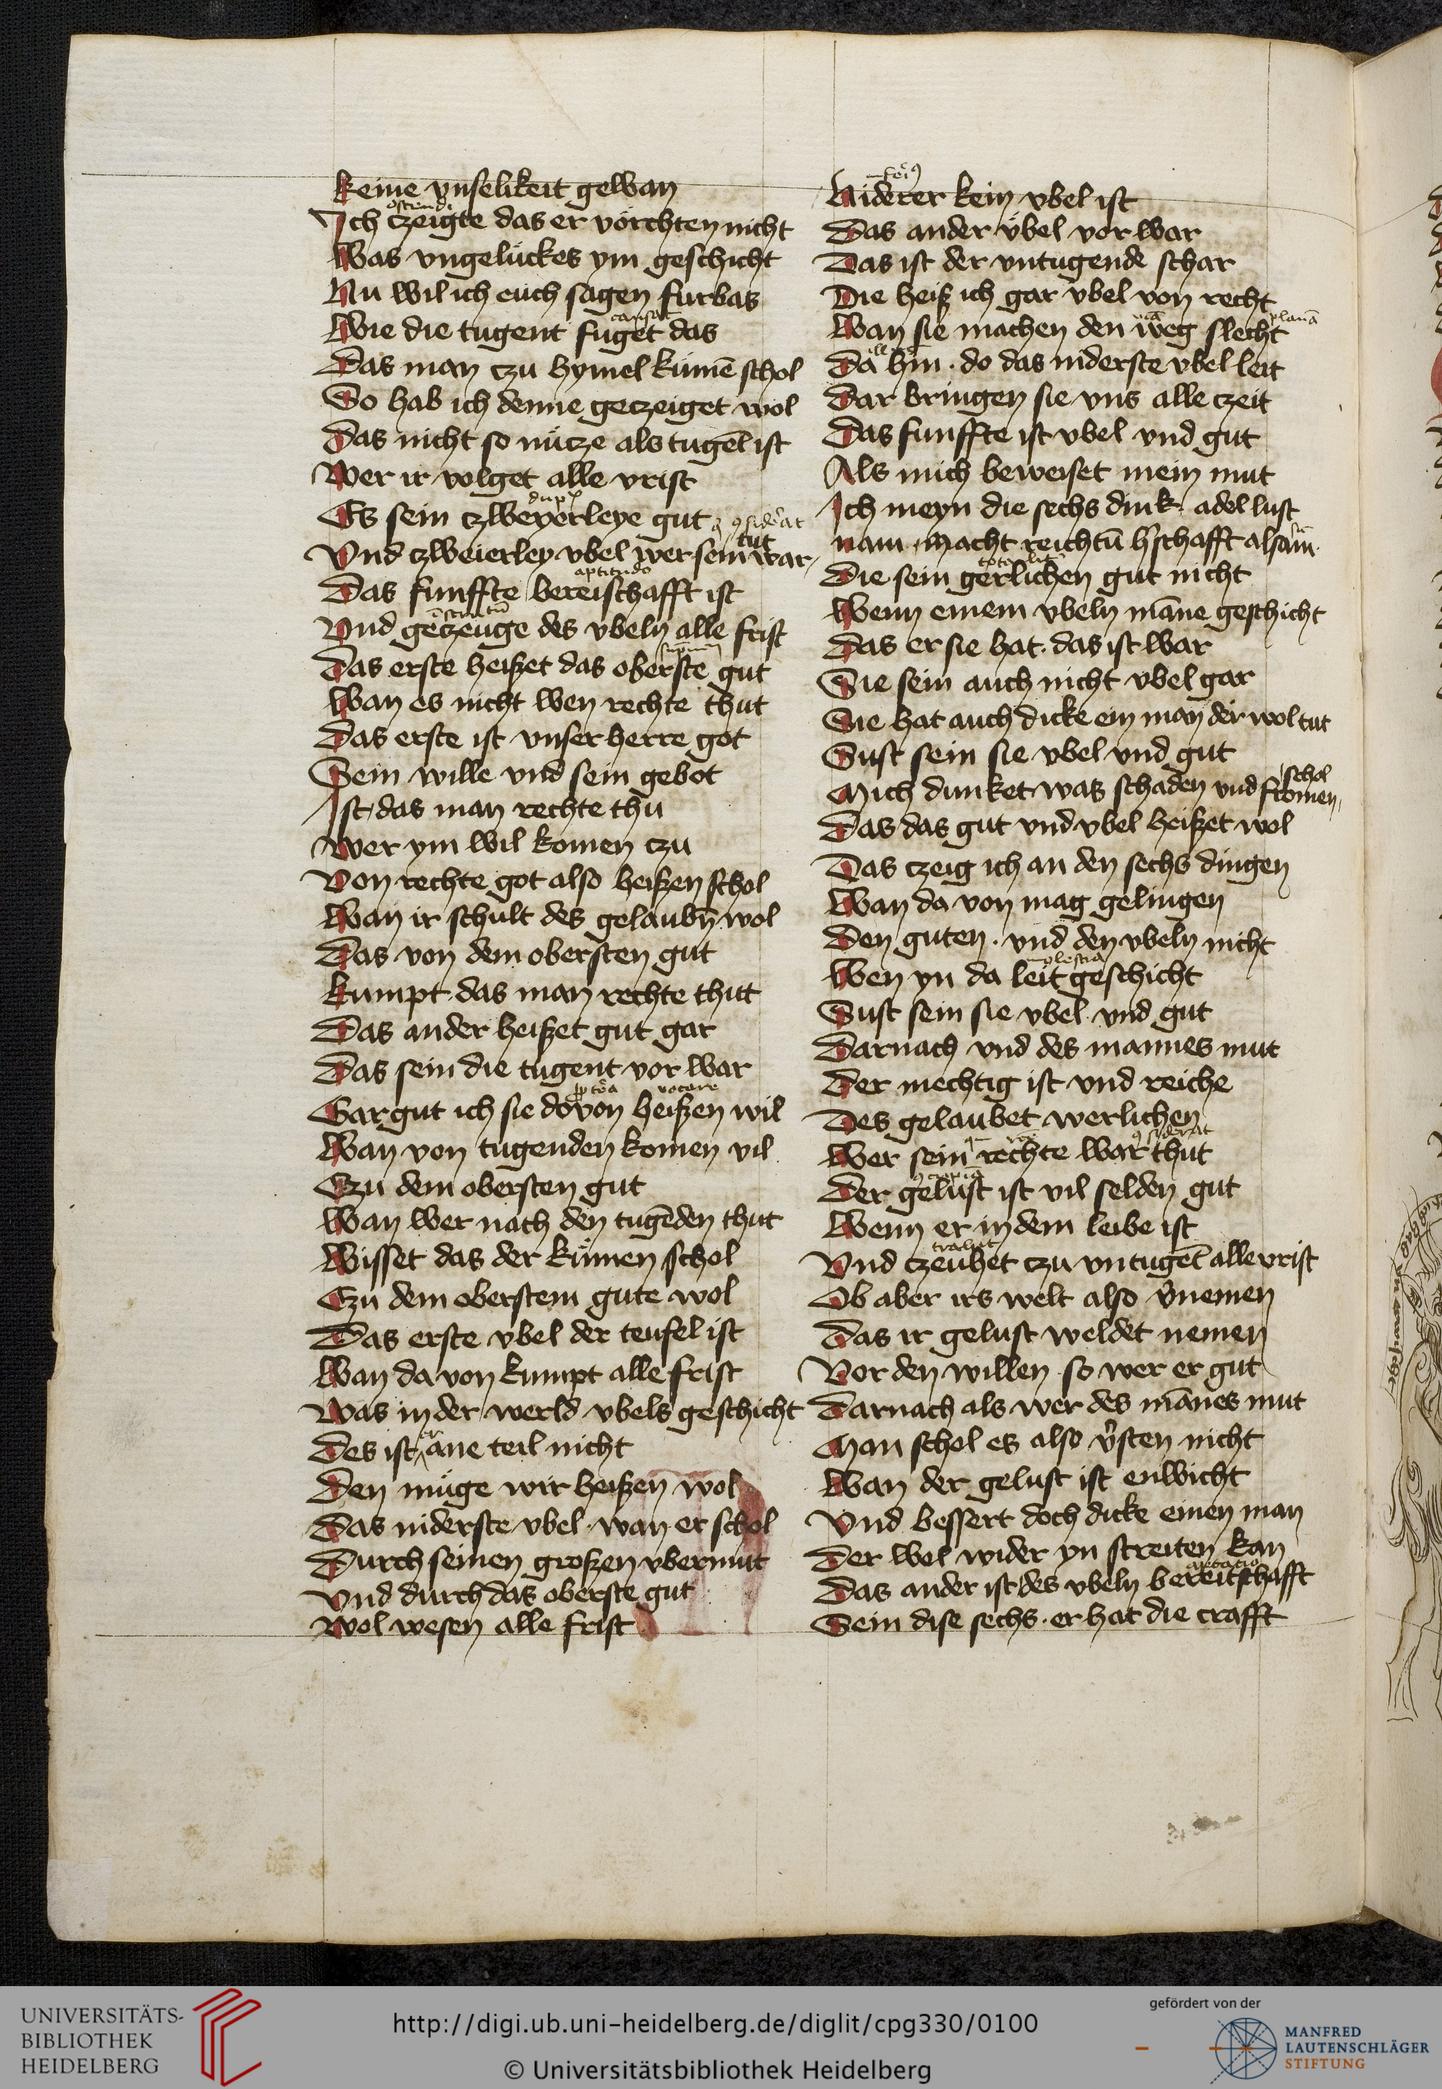 keine vnselikeit gewan
Ich czeigte das er vörchten nicht
Was vngelückes ym geschicht
Nu wil ich euch sagen furbas
Wie die tugent fuget das
Das man czu hymel kümē schol
So hab ich denne geczeiget wol
Das nicht so nücze als tugēt ist
Wer ir volget alle vrist
Es sein czweyerleye gut
Vnd czweierley vbel wer sein war tut
Das funffte bereischafft ist
Vnd gēczeuge des vbeln alle frist
Das erste heißet das oberste gut
Wan es nicht wen rechte thut
Das erste ist vnser herre got
Sein wille vnd sein gebot
Ist das man rechte thu
Wer ym wil komen czu
Von rechte got also heißen schol
Wan ir schult des gelaubn̄ wol
Das von dem obersten gut
kumpt das man rechte thut
Das ander heißet gut gar
Das sein die tugent vor war
Gar gut ich sie dovon heißen wil
Wan von tugenden komen vil
Czu dem obersten gut
Wan wer nach den tugēden thut
Wisset das der kümen schol
Czu dem oberstem gute wol
Das erste vbel der teufel ist
Wan da von kumpt alle frist
Was in der werld vbels geschicht
Des ist er ane teil nicht
Den müge wir heißen wol
Das niderste vbel wan er schol
Durch seinen großen vbermut
Vnd durch das oberste gut
Wol wesen alle frist
Niderer kein vbel ist
Das ander übel vor war
Das ist der vntugende schar
Die heiß ich gar vbel von recht
Wan sie machen den weg slecht
Da hin · do das niderste vbel leit
Dar bringen sie vns alle czeit
Das funffte ist vbel vnd gut
Als mich beweiset mein mut
Ich meyn die sechs dink adel lust
nam macht reichtū h̓schafft alsam
Die sein gerlichen gut nicht
Wenn einem vbeln māne geschicht
Das er sie hat · das ist war
Sie sein auch nicht vbel gar
Sie hat auch dicke ein man der wol tut
Sust sein sie vbel vnd gut
Mich dunket was schaden vnd fromen schol
Das das gut vnd vbel heißet wol
Das czeig ich an den sechs dingen
Wan da von mag gelingen
Den guten · vnd den vbeln nicht
Wen yn da leit geschicht
Sust sein sie vbel vnd gut
Darnach vnd des mannes mut
Der mechtig ist vnd reiche
Des gelaubet werlichen
Wer sein rechte war thut
Der gelust ist vil selden gut
Wenn er in dem leibe ist
Vnd czeuhet czu vntugēt alle vrist
Ob aber irs welt also v̓nemen
Das ir gelust weldet nemen
Vor den willen so wer er gut
Darnach als wer des mānes mut
Man schol es also v̓sten nicht
Wan der gelust ist enwicht
Vnd bessert doch dicke einen man
Der wol wider yn streiten kan
Das ander ist des vbeln bereitschafft
Sein dise sechs · er hat die crafft
UNIVERSITÄTS-
BIBLIOTHEK
HEIDELBERG
http://digi.ub.uni-heidelberg.de/diglit/cpg330/0100
© Universitätsbibliothek Heidelberg
gefördert von der
MANFRED
LAUTENSCHLÄGER
STIFTUNG